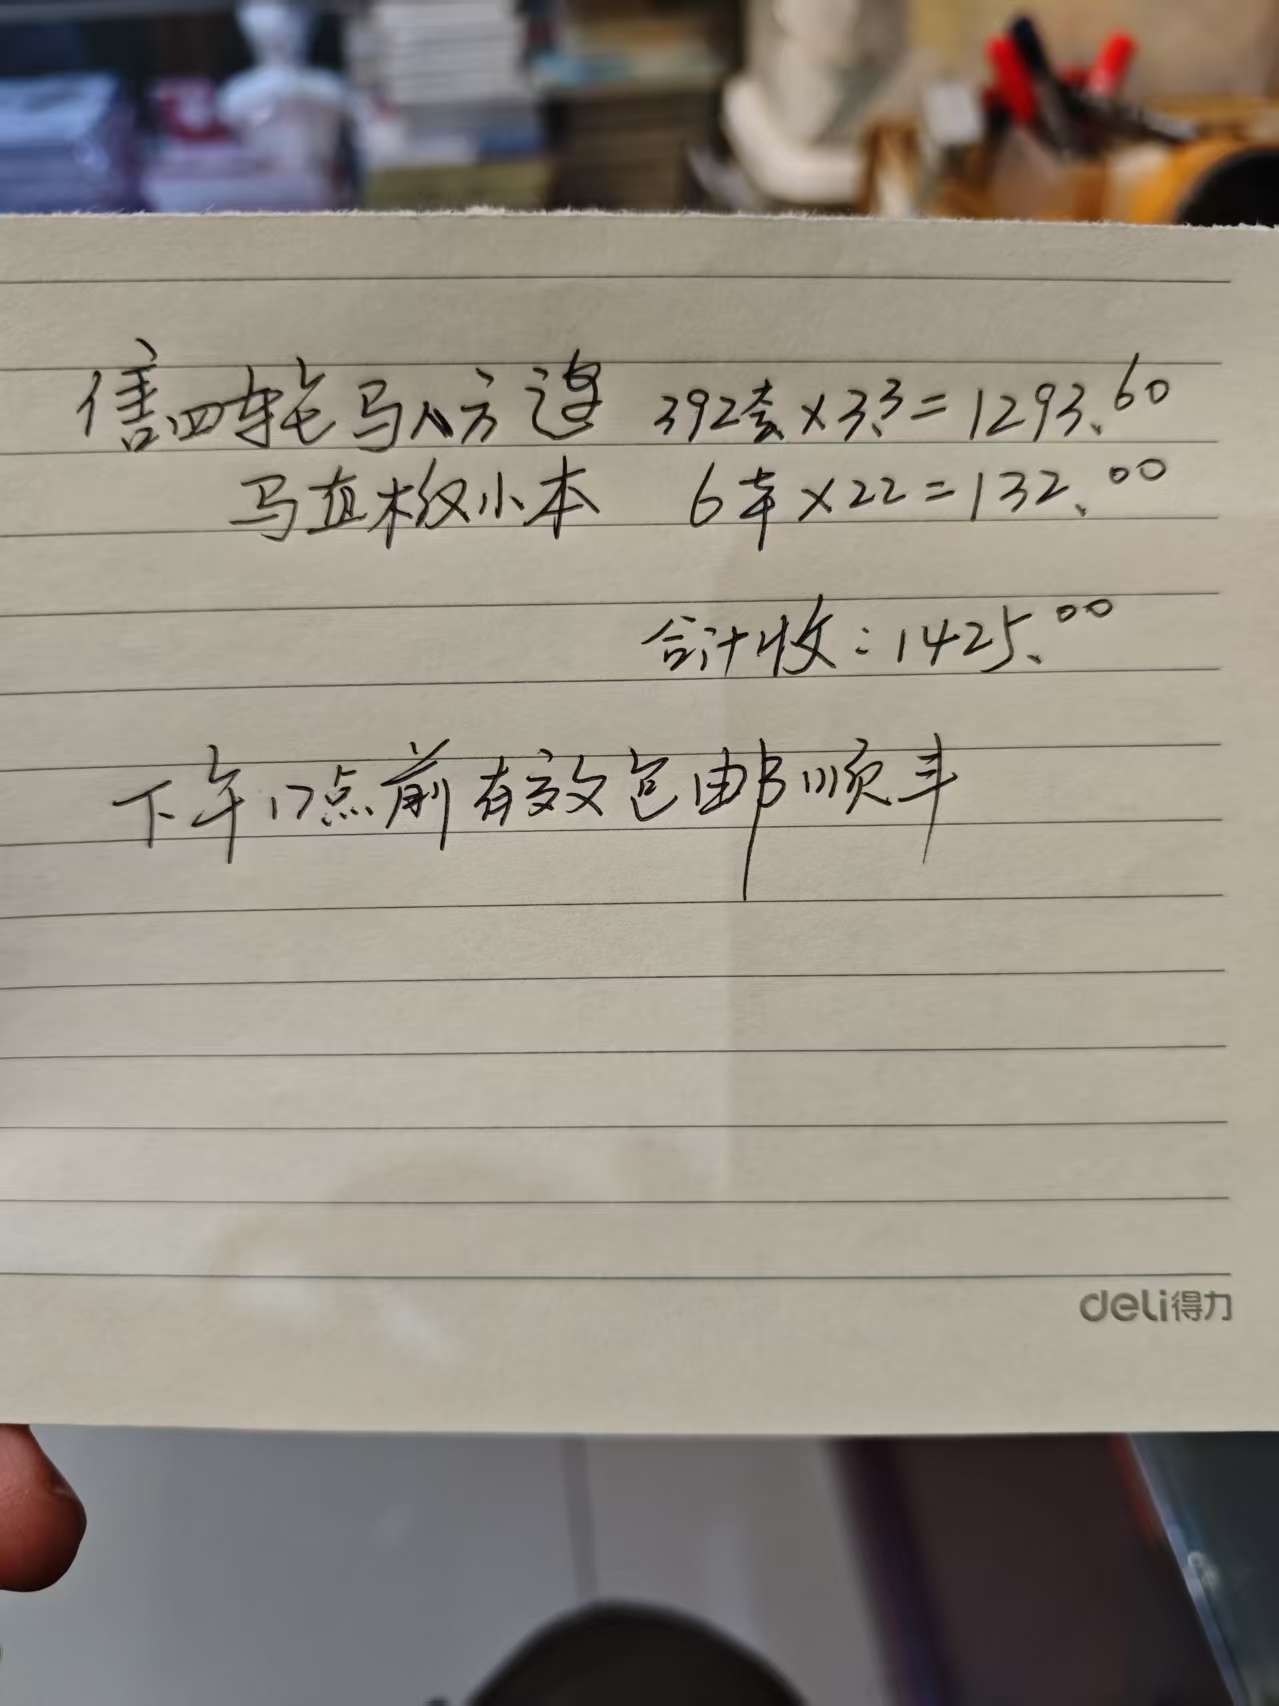 信四轮马八方连 392套×3.3=1293.60
马直板小本 6本×22=132.00
合计收:1425.00
下午17点前有效包邮顺丰
deli得力